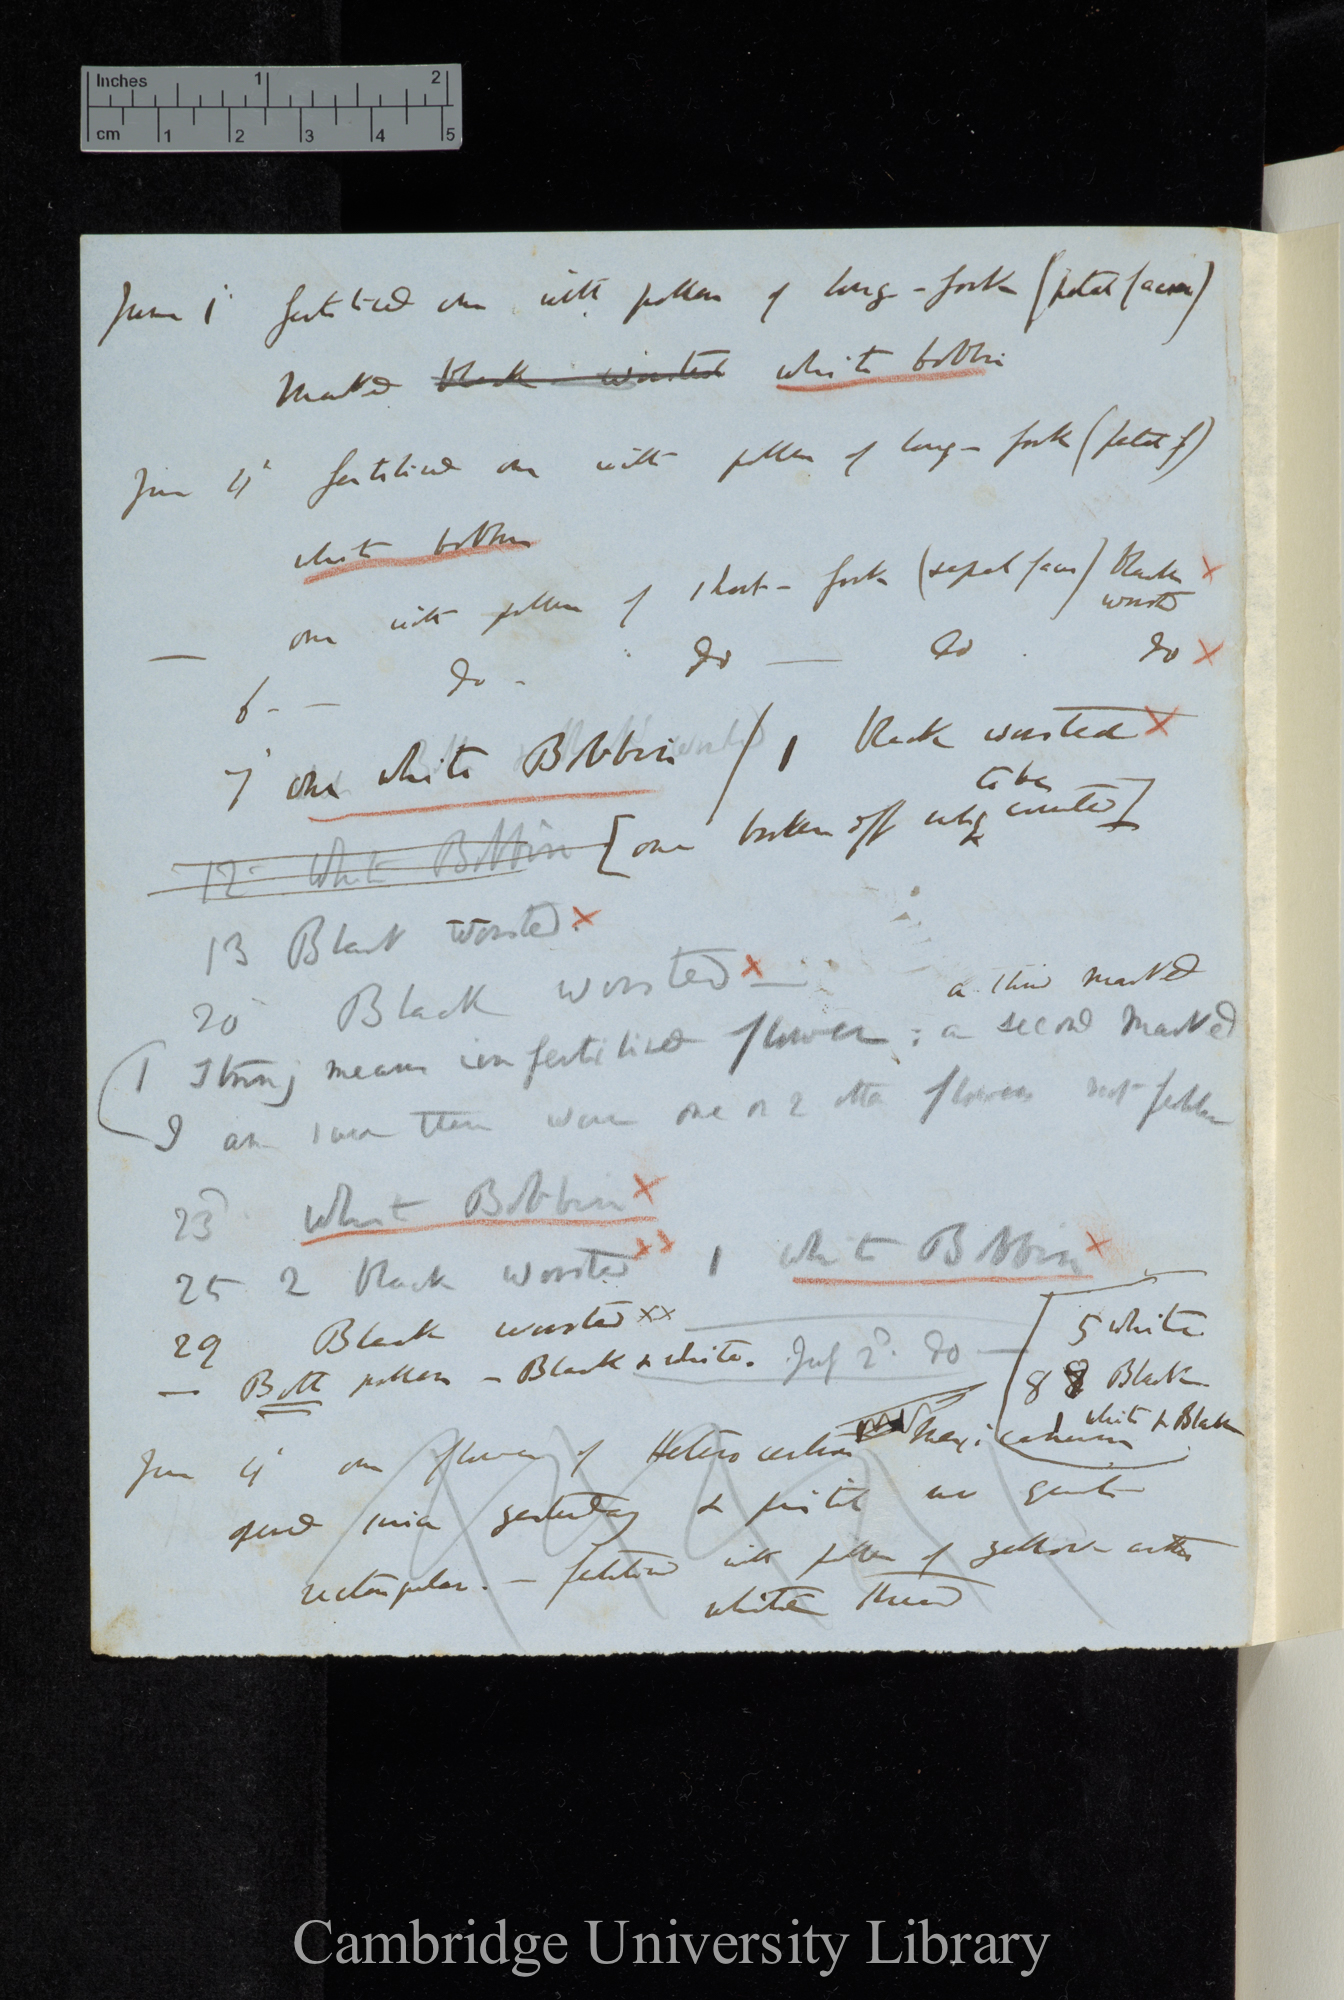 Inches 1 2
cm 1 2 3 4 5
June 1' fertilised one with pollen of long-fork (petal facer)
Marked black worsted white bobbin
June 4' fertilised one with pollen of long-fork (petal f)
white bobbin
— one with pollen of short-fork (sepal facer) black worsted x
6 - — do - do — do do x
7' one white Bobbin / 1 black worsted x
12 White Bobbin [one broken off why to be counted]
13 Black Worsted. x
20 Black worsted x —
a third marked
(1 String means unfertilised flower; a second marked
I am sure there were one or 2 other flowers not fallen
23 White Bobbin x
25 2 black worsted xx 1 white Bobbin x
29 Black worsted xx
— Both pollens - Black & white. July 2d. do —
[5 white
8 8 Black
1 white & Black
June 4' one flower of Heterocentron Mexicanum
opened since yesterday & pistil now quite
rectangular. - fertilised with pollen of yellow anthers
white thread
Cambridge University Library